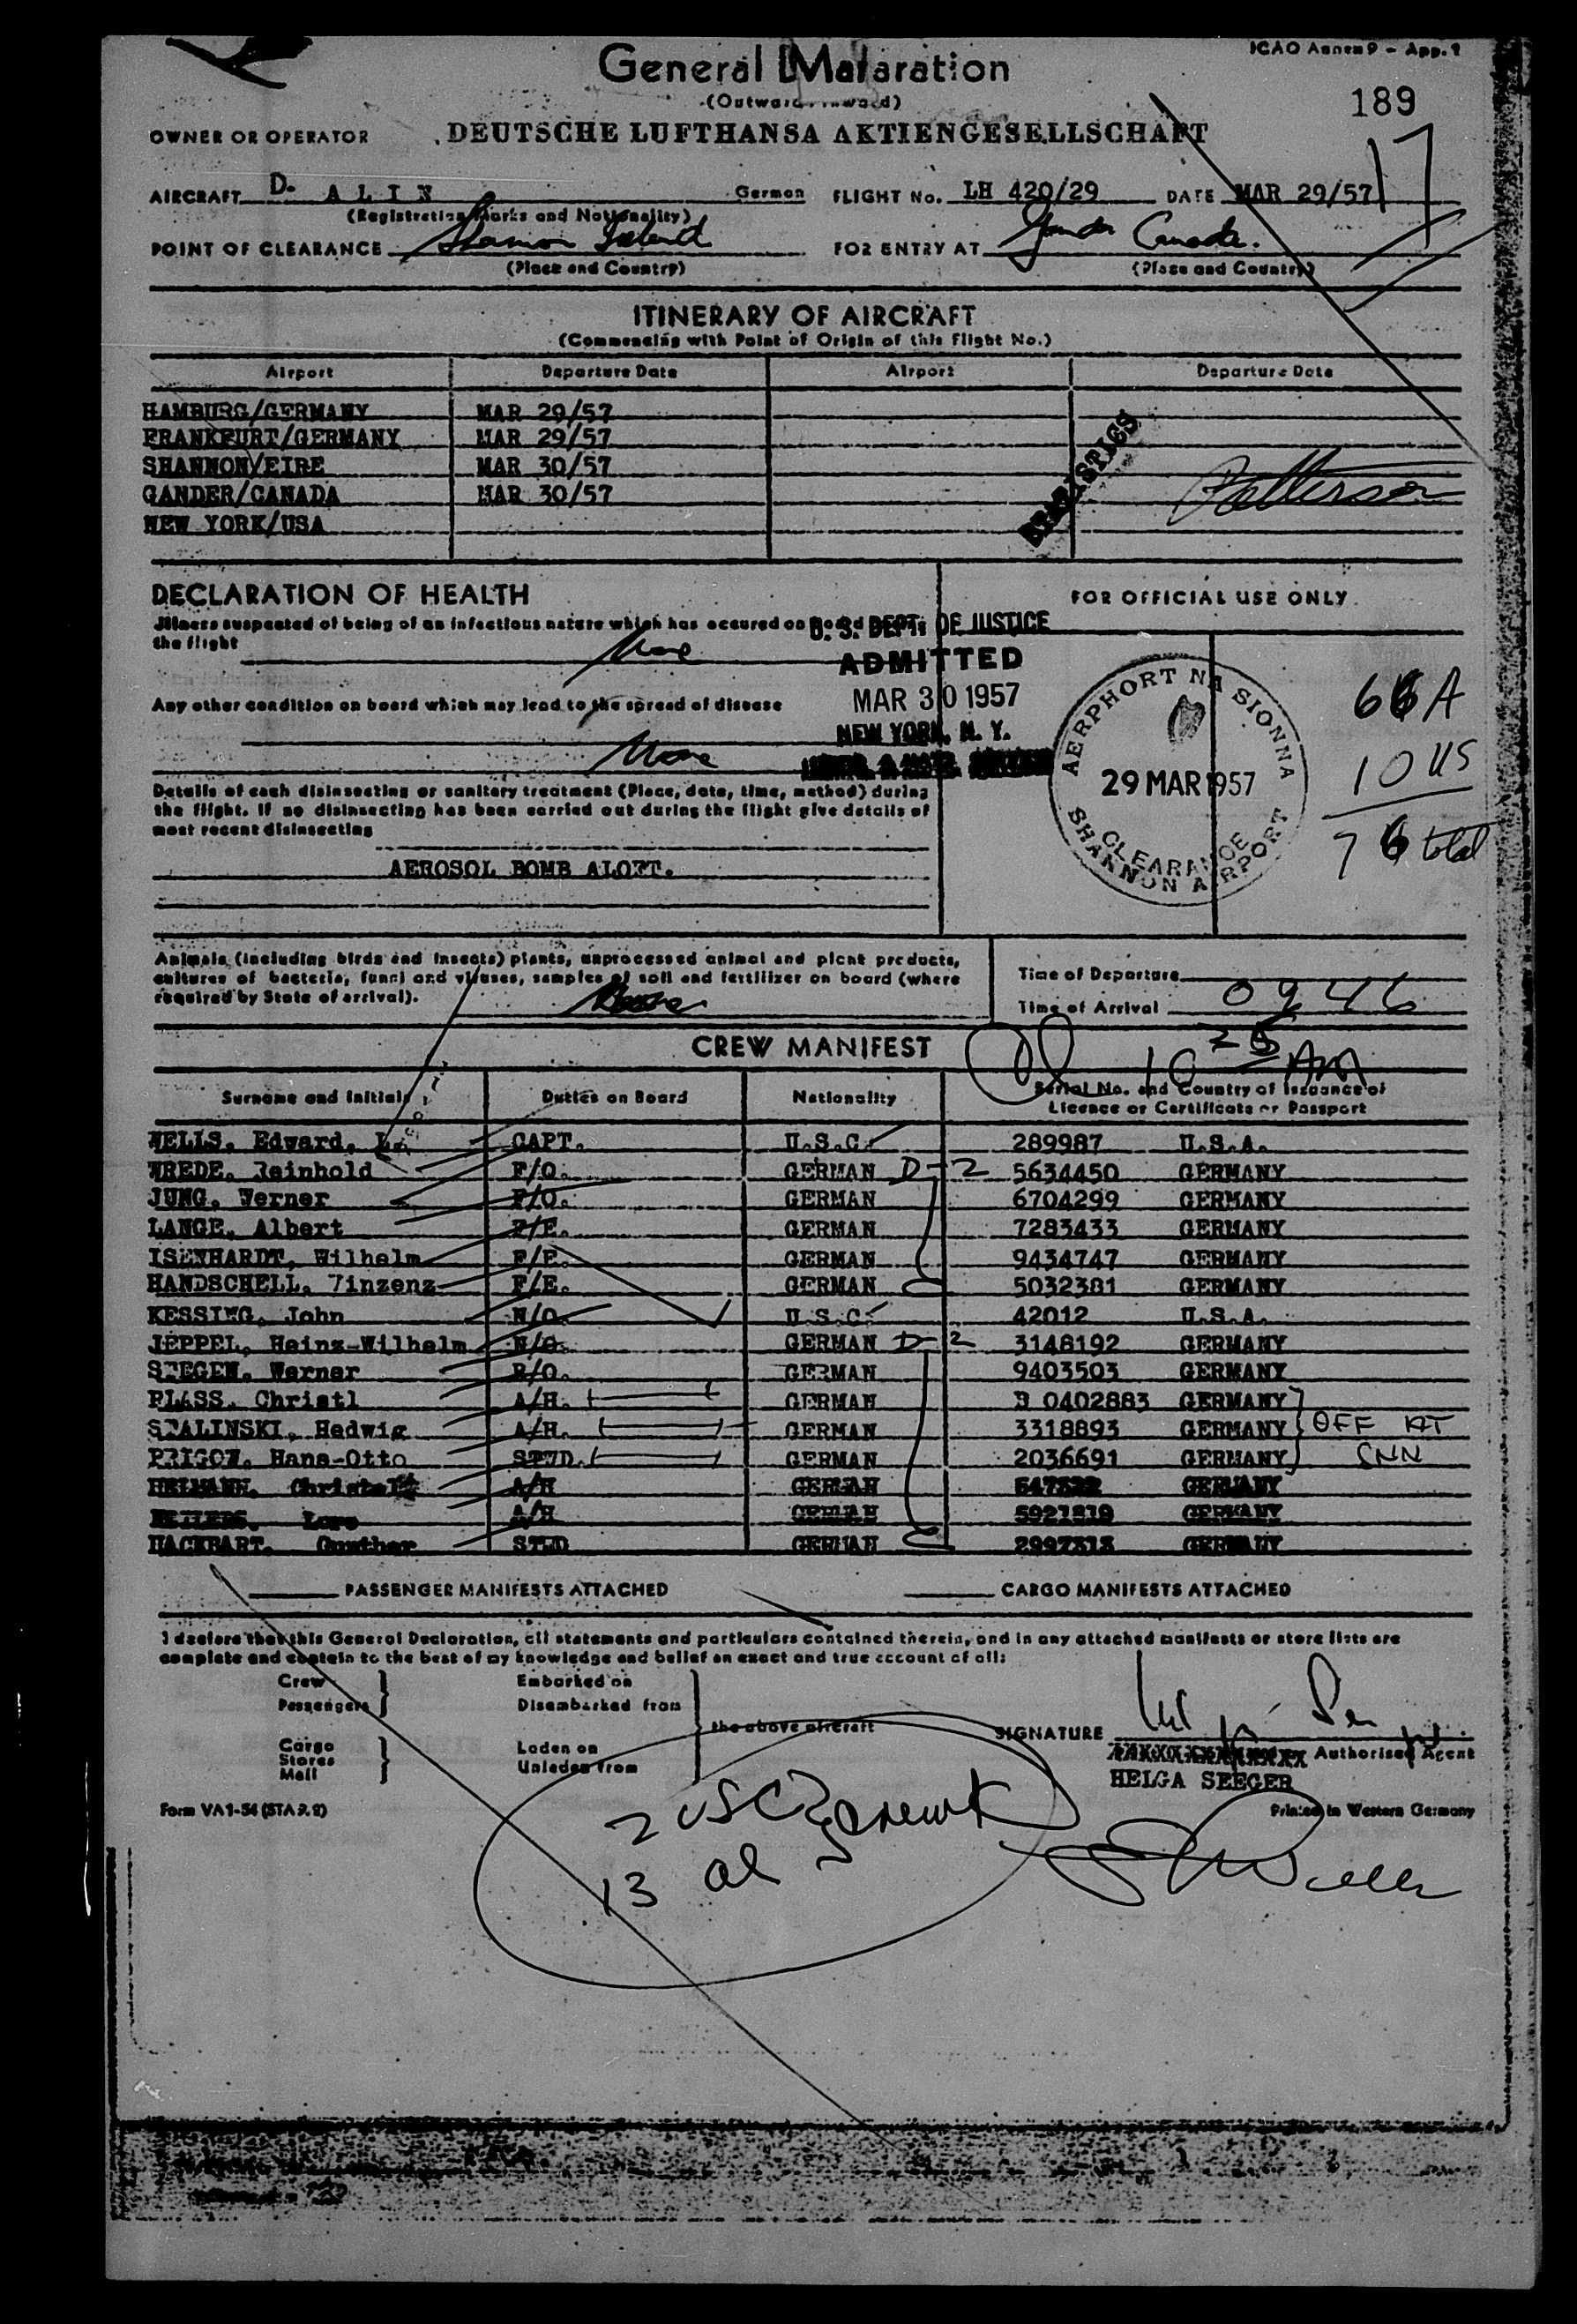 ICAO Annex 9 - App. 1
General
189
OWNER OR OPERATOR DEUTSCHE LUFTHANSA AKTIENGESELLSCHAFT
AIRCRAFT D. ALIN German FLIGHT No. LH 420/29 DATE MAR 29/57
(Registration Marks and Nationality)
POINT OF CLEARANCE Shannon Ireland FOR ENTRY AT Gander Canada.
(Place and Country) (Place and Country)
ITINERARY OF AIRCRAFT
(Commencing with Point of Origin of this Flight No.)
Airport Departure Date Airport Departure Date
HAMBURG/GERMANY MAR 29/57
FRANKFURT/GERMANY MAR 29/57
SHANNON/EIRE MAR 30/57
GANDER/CANADA MAR 30/57
NEW YORK/USA
STATISTICS
Patterson
DECLARATION OF HEALTH
FOR OFFICIAL USE ONLY
Illness suspected of being of an infectious nature which has occured on board
the flight None
U. S. DEPT. OF JUSTICE
ADMITTED
MAR 30 1957
NEW YORK, N. Y.
Any other condition on board which may lead to the spread of disease
None
AERPHORT NA SIONNA
29 MAR 1957
CLEARANCE
SHANNON AIRPORT
66 A
10 US
76 total
Details of each disinsecting or sanitary treatment (Place, date, time, method) during
the flight. If no disinsecting has been carried out during the flight give details of
most recent disinsecting
AEROSOL BOMB ALOFT.
Animals (including birds and insects) plants, unprocessed animal and plant products,
cultures of bacteria, fungi and viruses, samples of soil and fertilizer on board (where
required by State of arrival). None
Time of Departure
Time of Arrival 0946
10 25 AM
CREW MANIFEST
Surname and Initials Duties on Board Nationality Serial No. and Country of Issuance of
Licence or Certificate or Passport
WELLS, Edward, L. CAPT. U.S.C. 289987 U.S.A.
WREDE, Reinhold F/O. GERMAN D-2 5634450 GERMANY
JUNG, Werner F/O. GERMAN 6704299 GERMANY
LANGE, Albert F/E. GERMAN 7283433 GERMANY
ISENHARDT, Wilhelm F/E. GERMAN 9434747 GERMANY
HANDSCHELL, Vinzenz F/E. GERMAN 5032381 GERMANY
KESSING, John N/O. U.S.C. 42012 U.S.A.
JEPPEL, Heinz-Wilhelm N/O. GERMAN D-2 3148192 GERMANY
SEEGEN, Werner R/O. GERMAN 9403503 GERMANY
PLASS, Christl A/H. GERMAN B 0402883 GERMANY
STALINSKI, Hedwig A/H. GERMAN 3318893 GERMANY OFF AT
PRIGON, Hans-Otto STWD. GERMAN 2036691 GERMANY SNN
HEIMANN, Christel A/H GERMAN GERMANY
Lore A/H GERMAN GERMANY
HACKBART, Gunther STWD GERMAN 2997313 GERMANY
PASSENGER MANIFESTS ATTACHED CARGO MANIFESTS ATTACHED
I declare that this General Declaration, all statements and particulars contained therein, and in any attached manifests or store lists are
complete and contain to the best of my knowledge and belief an exact and true account of all:
Crew Embarked on
Passengers Disembarked from
the above aircraft
Cargo Loden on
Stores Unladen from
Mail
SIGNATURE
Authorised Agent
HELGA SEEGER
Form VA1-54 (STA 9.2) Printed in Western Germany
2 USC crew
13 al